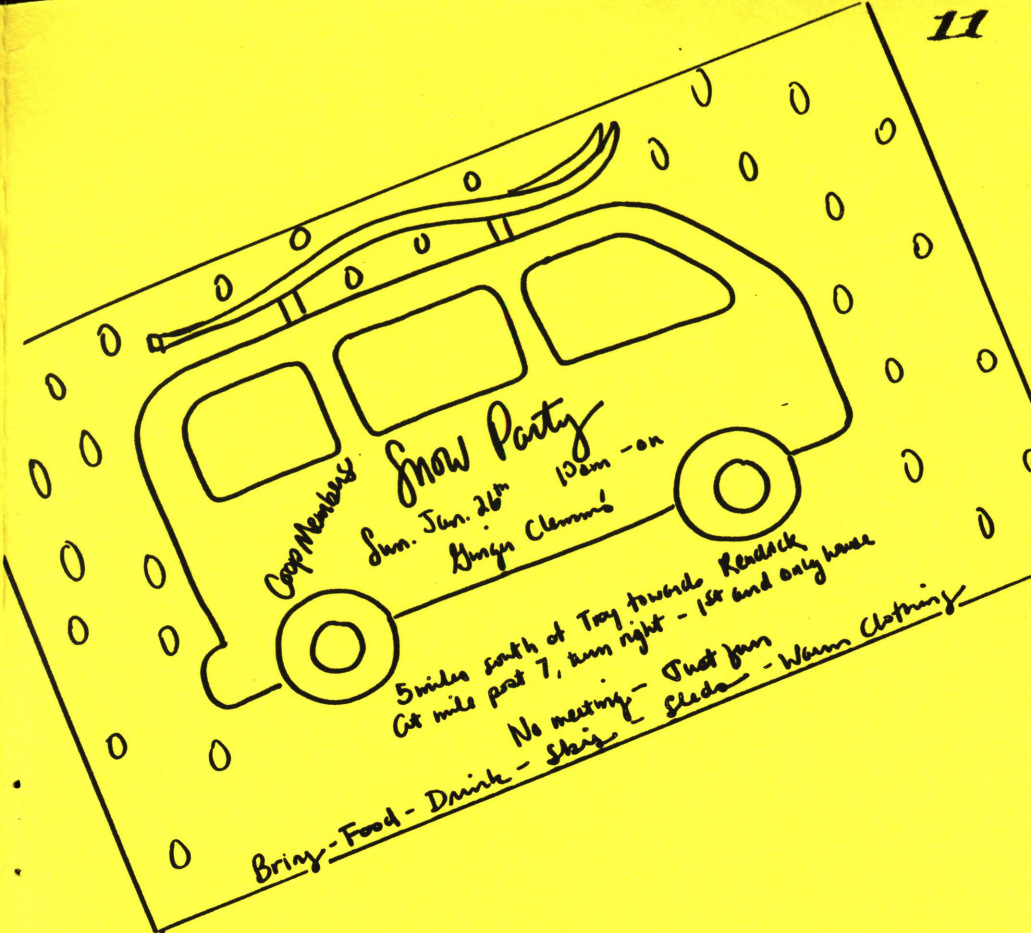 11
Coop Members
Snow Party
Sun. Jan. 26th 10am - on
Ginger Clemms'
5 miles south of Troy towards Kendrick
at mile post 7, turn right - 1st and only house
No meeting - Just fun
Bring - Food - Drink - Skis - Sleds - Warm Clothing